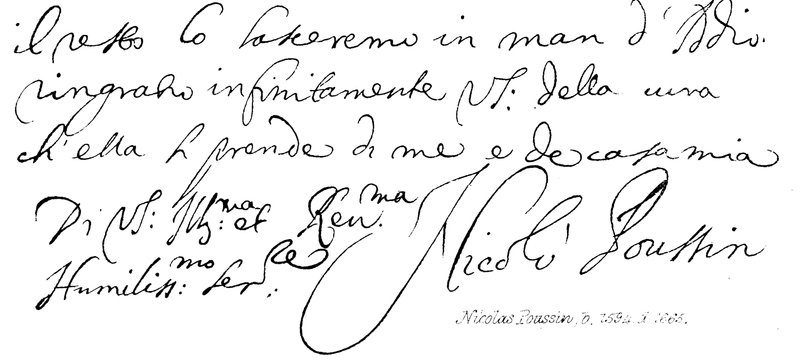 il resto lo lasseremo in man d'Iddio.
ringratio infinitamente VS: della cura
ch'ella si prende di me e de casa mia
Di VS: Illma: et Reu.ma
Humiliss:mo Ser.:re Nicolò Poussin
Nicolas Poussin, b. 1594 d. 1665.